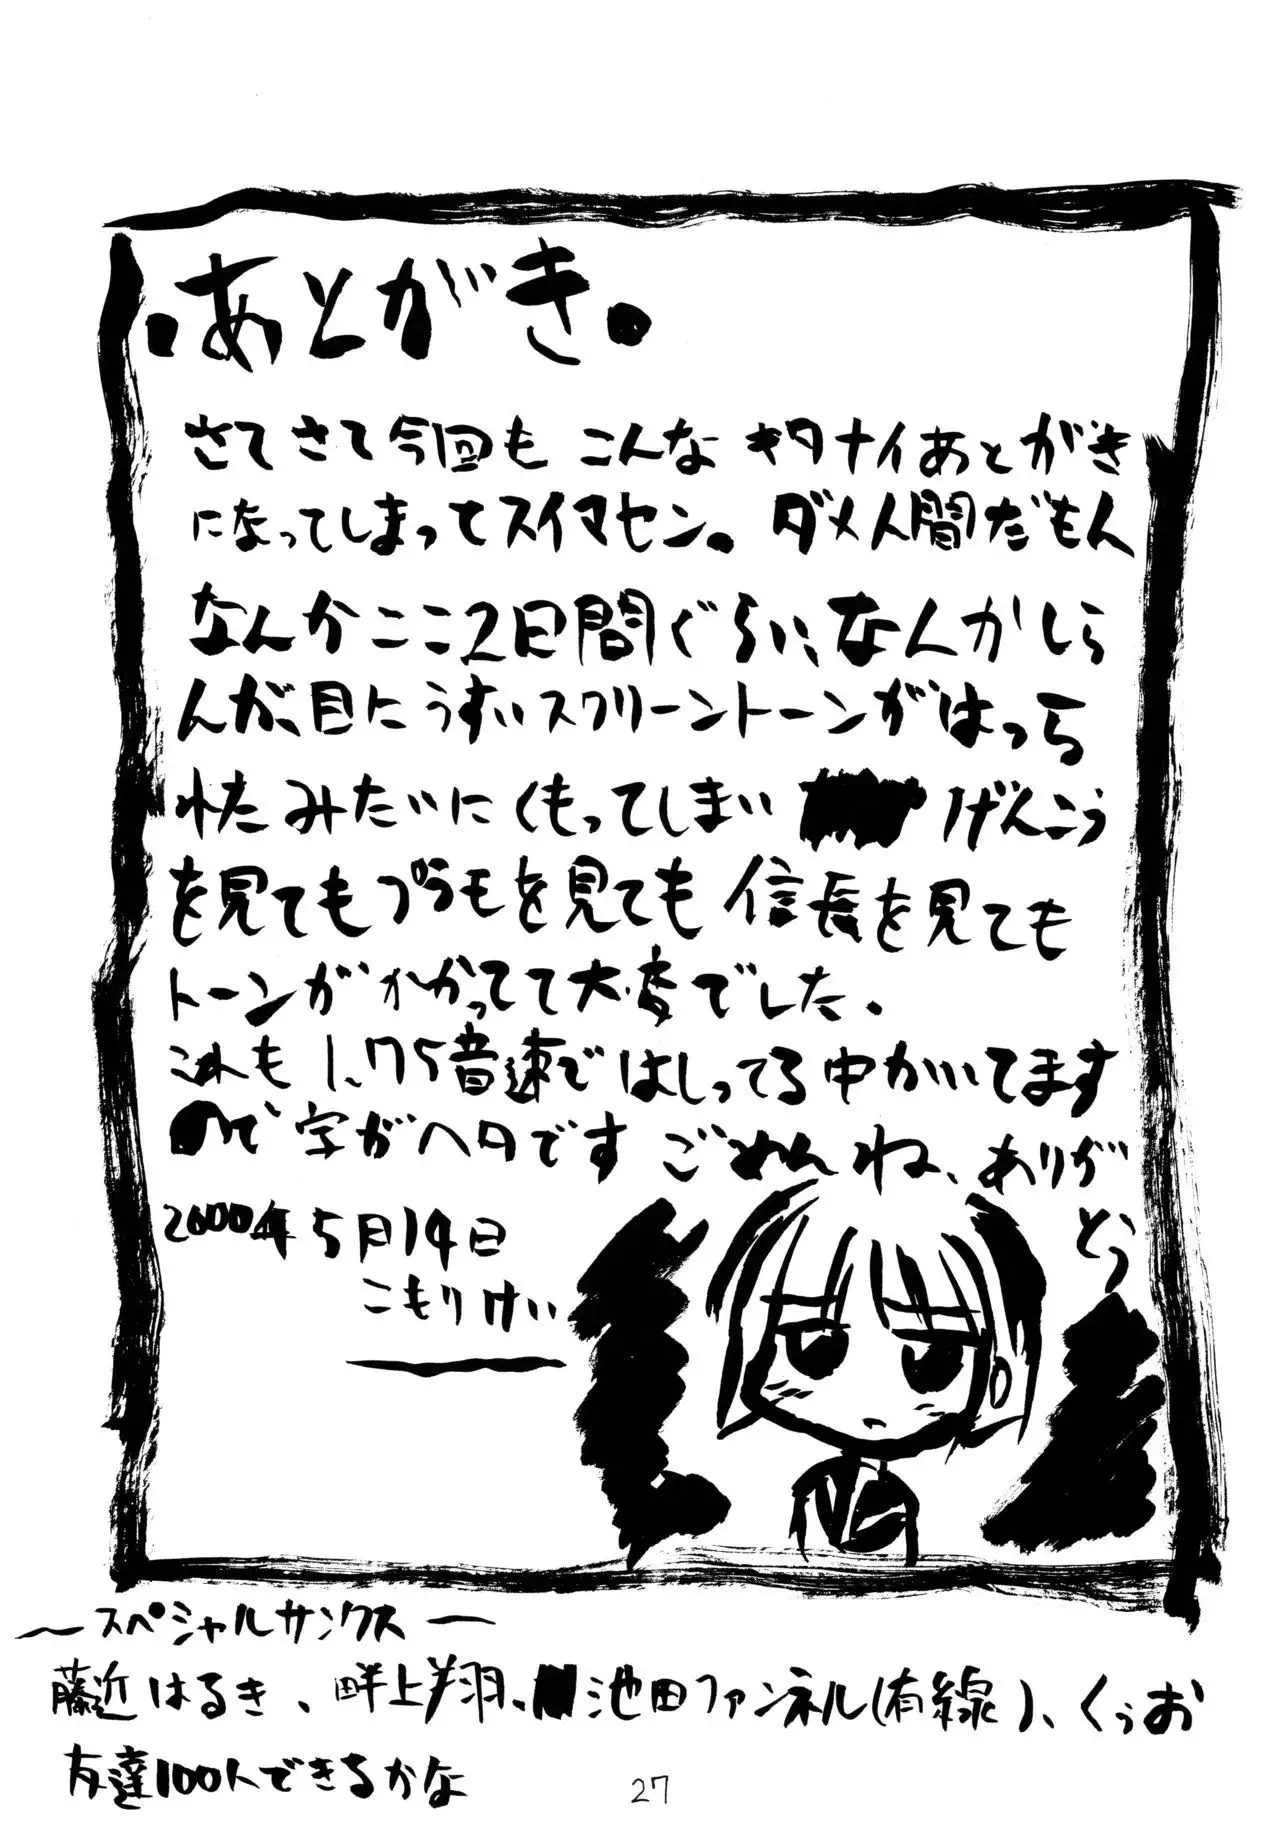 .あとがき.
さてさて今回も こんな キタナイあとがき
になってしまってスイマセン。ダメ人間だもん
なんかここ2日間ぐらい、なんかしら
んが、目にうすいスクリーントーンがはっら
れたみたいにくもってしまい げんこう
を見てもプラモを見ても 信長を見ても
トーンがかかってて大変でした。
これも 1.75音速ではしってる中かいてます
ので字がヘタです ごめんね、ありが
とう
2000年5月14日
こもりけい
〜スペシャルサンクス〜
藤近はるき、畔上翔、池田ファンネル(有線)、くぅお
友達100人できるかな
27